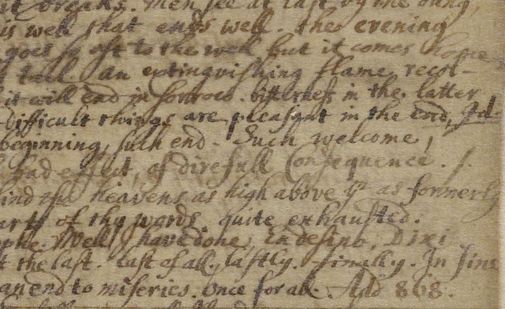 it breaks. Men see at last by the
is well that ends well. the evening
goes so oft to the well but it comes home
tale an extinguishing flame, recol-
it will end in sorrow. bitterness in the latter
difficult things are pleasant in the end,
beginning, such end. Such welcome,
bad effect, of direfull Consequence.
find the heavens as high above yu as formerly
of thy words. quite exhausted.
Well I have done, En desino, Dixi
t the last. last of all, lastly. finally. In fine
an end to miseries. once for all. Add 808.